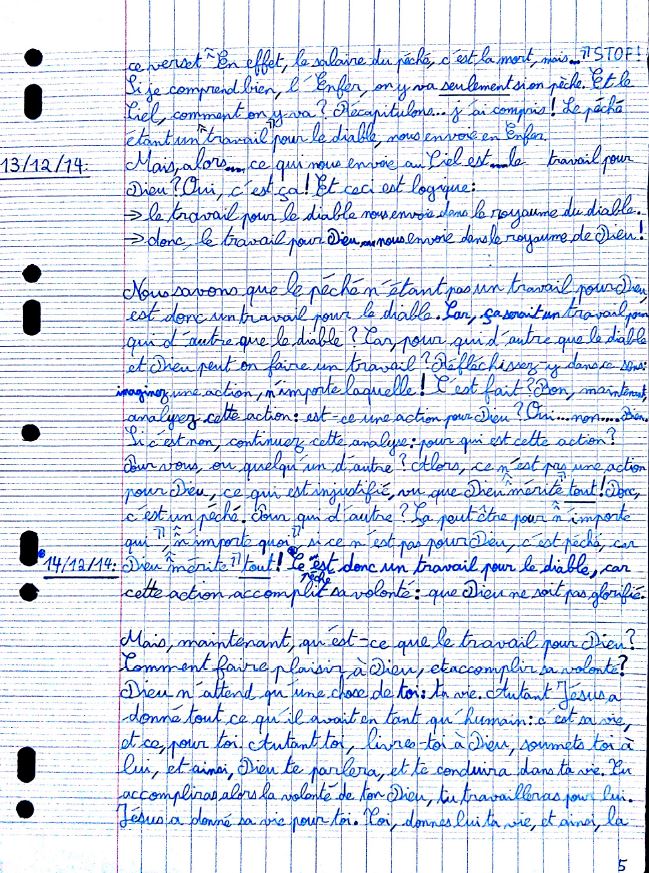 ce verset "En effet, le salaire du péché, c'est la mort, mais..." STOP!
Si je comprend bien, l'Enfer, on y va seulement si on pèche. Et le
Ciel, comment on y va? Récapitulons... j'ai compris! Le péché
étant un "travail" pour le diable, nous envoie en Enfer.
13/12/14: Mais, alors... ce qui nous envoie au Ciel est...le travail pour
Dieu? Oui, c'est ça! Et ceci est logique:
→ le travail pour le diable nous envoie dans le royaume du diable.
→ donc, le travail pour Dieu...nous envoie dans le royaume de Dieu!
Nous savons que le péché n'étant pas un travail pour Dieu,
est donc un travail pour le diable. Car, ça serait un travail pour
qui d'autre que le diable? Car, pour qui d'autre que le diable
et Dieu peut on faire un travail? Réfléchissez-y dans ce sens:
imaginez une action, n'importe laquelle! C'est fait? Bon, maintenant,
analysez cette action: est-ce une action pour Dieu? Oui...non.... Bien.
Si c'est non, continuez cette analyse: pour qui est cette action?
Pour vous, ou quelqu'un d'autre? Alors, ce n'est pas une action
pour Dieu, ce qui est injustifié, vu que Dieu mérite tout! Donc,
c'est un péché. Pour qui d'autre? Ça peut être pour n'importe
qui", "n'importe quoi", si ce n'est pas pour Dieu, c'est péché, car
14/12/14: Dieu "mérite" tout! Le péché est donc un travail pour le diable, car
cette action accomplit sa volonté: que Dieu ne soit pas glorifié.
Mais, maintenant, qu'est-ce que le travail pour Dieu?
Comment faire plaisir à Dieu, et accomplir sa volonté?
Dieu n'attend qu'une chose de toi: ta vie. Autant Jésus a
donné tout ce qu'il avait en tant qu'humain: c'est sa vie,
et ce, pour toi. Autant toi, livres-toi à Dieu, soumets toi à
lui, et ainsi, Dieu te parlera, et te conduira dans ta vie. Tu
accompliras alors la volonté de ton Dieu, tu travailleras pour lui.
Jésus a donné sa vie pour toi. Toi, donnes lui ta vie, et ainsi, la
5